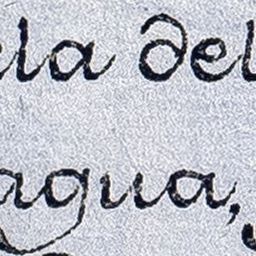 ela del
agua,